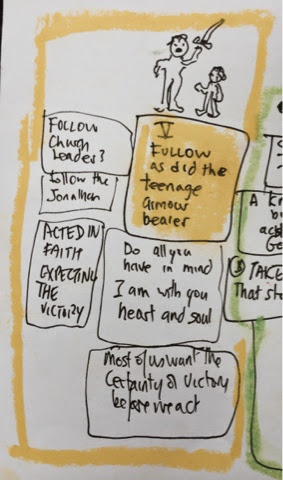 V
FULLOW
as did the
teenage
armour
bearer
FOLLOW
Church
Leader?
Follow the
Jonathan
ACTED IN
FAITH
EXPECTING
THE
VICTORY
Do all you
have in mind
I am with you
heart and soul
Most of us want the
Certainty of victory
before we act
A
TAKE
That